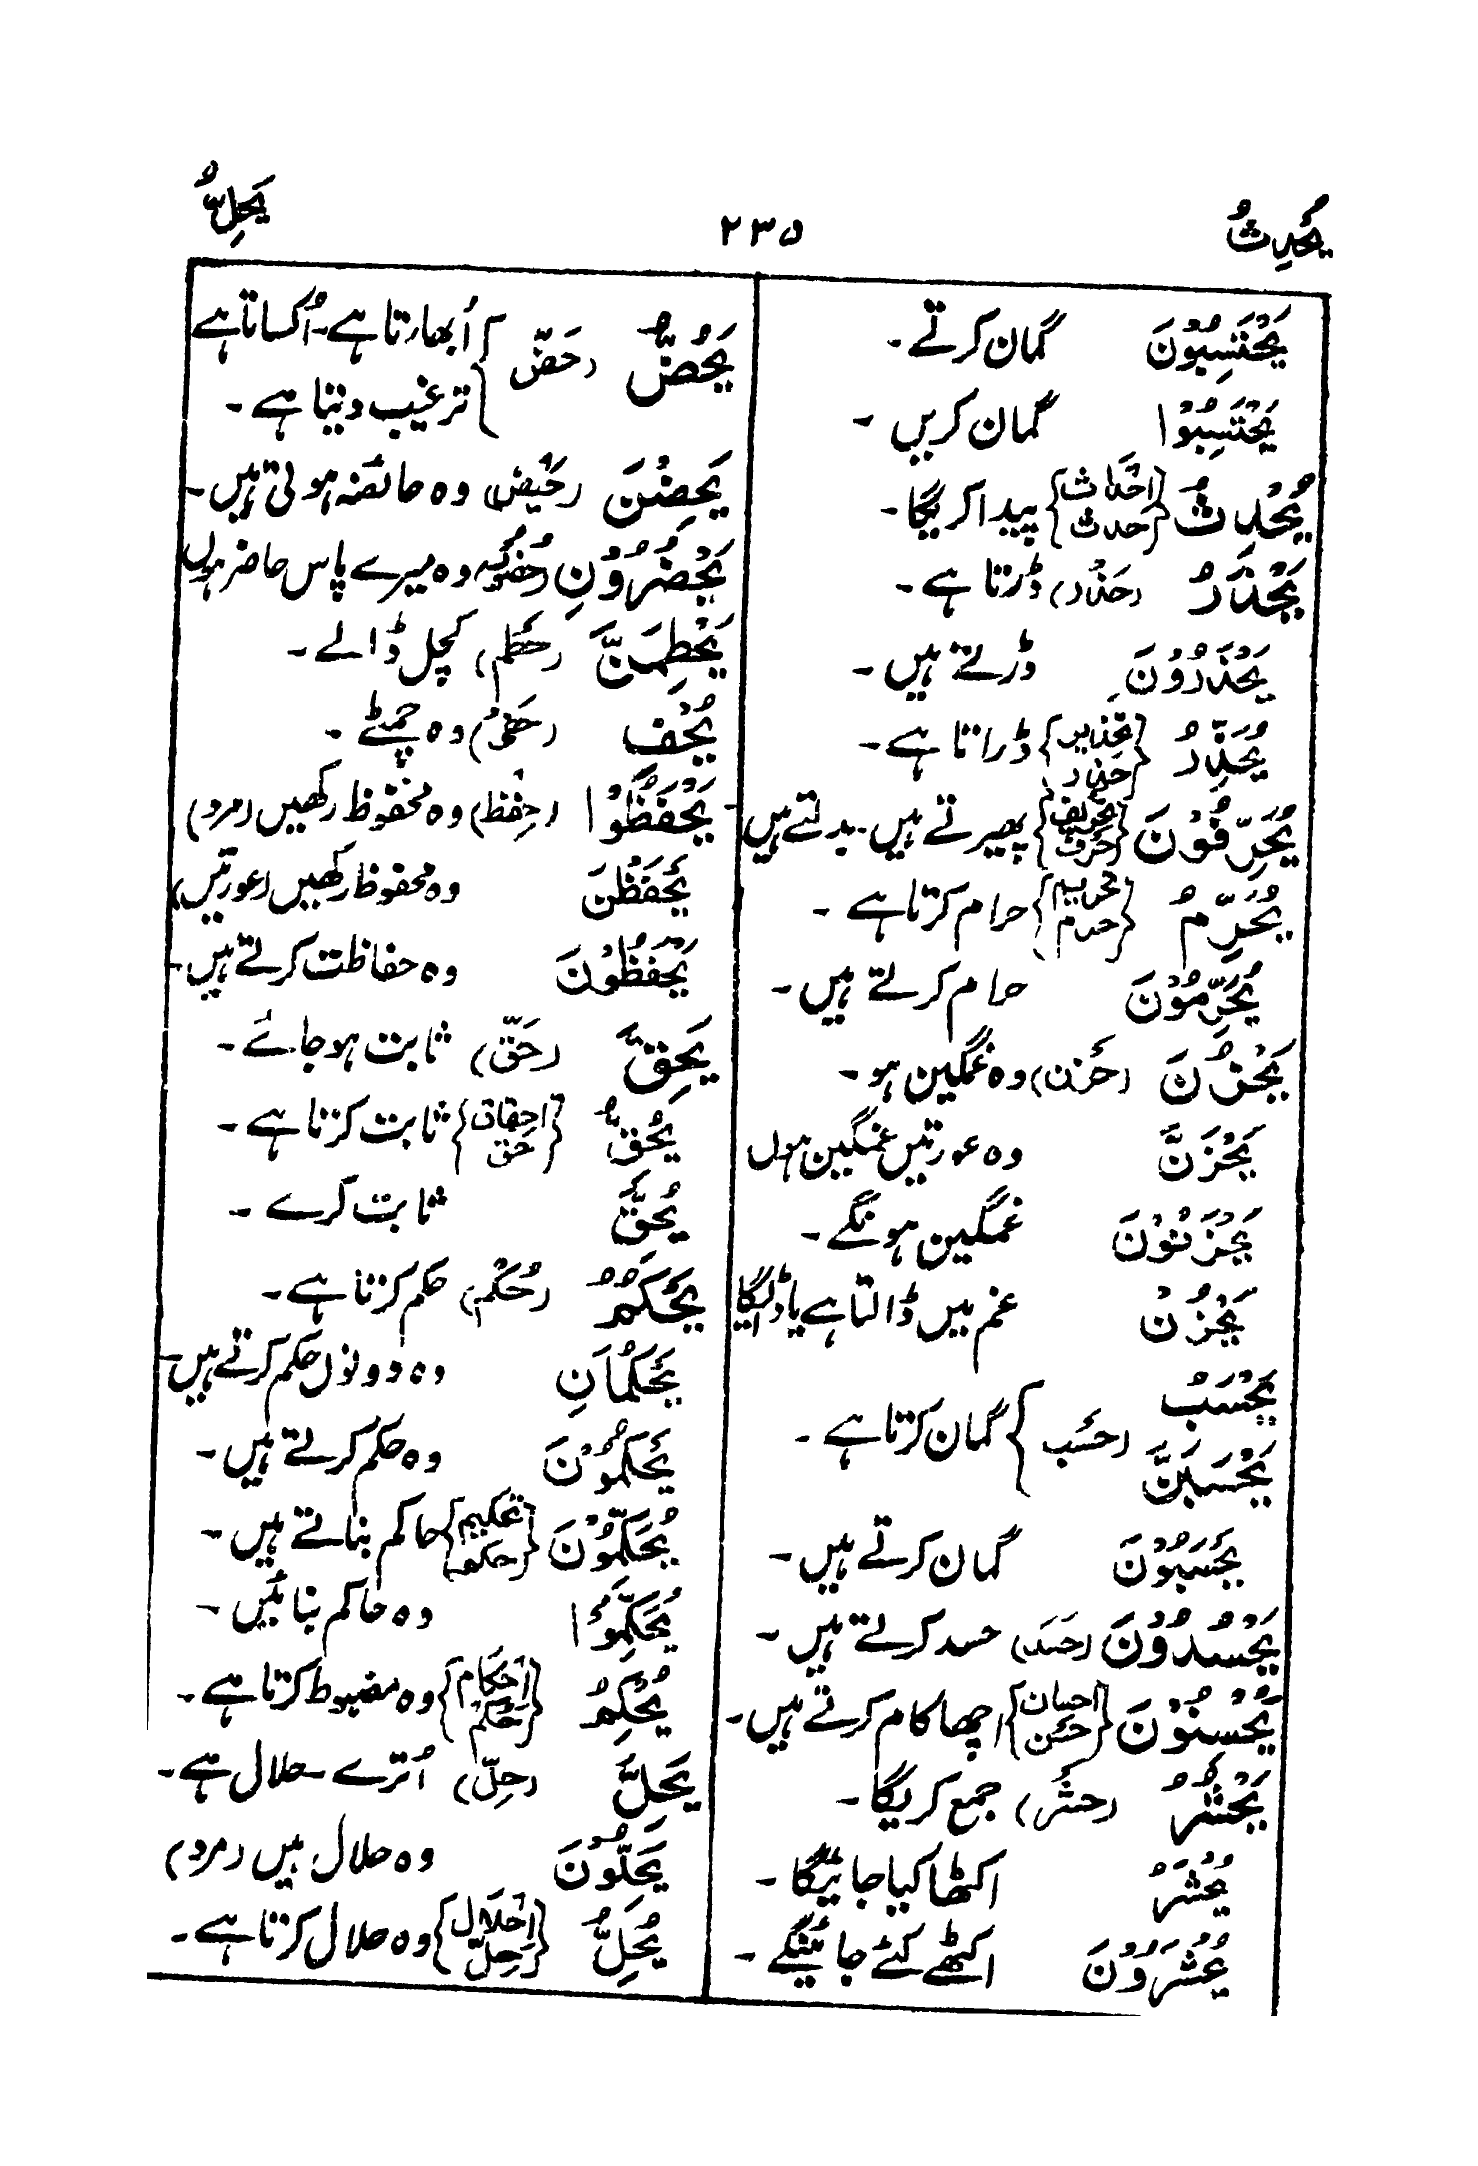 يُحْدِثُ
٢٣٥
يُحِلُّ
يَحْتَسِبُوْنَ گمان کرتے۔
يَحْتَسِبُوْا گمان کریں ۔
يُحْدِثُ (احداث حدث) پیدا کریگا۔
يَحْذَرُ (حَذَر) ڈرتا ہے۔
يَحْذَرُوْنَ ڈرتے ہیں۔
يُحَذِّرُ (تحذیر حذر) ڈراتا ہے۔
يُحَرِّفُوْنَ (تحریف حرف) پھیرتے ہیں۔ بدلتے ہیں۔
يُحَرِّمُ (تحریم حرم) حرام کرتا ہے ۔
يُحَرِّمُوْنَ حرام کرتے ہیں۔
يَحْزَنْ (حُزن) وہ غمگین ہو۔
يَحْزَنَّ وہ عورتیں غمگین ہوں
يَحْزَنُوْنَ غمگین ہونگے۔
يَحْزُنُ غم میں ڈالتا ہے یا ڈالیگا
يَحْسَبُ
يَحْسَبَنَّ (حسب) گمان کرتا ہے ۔
يَحْسَبُوْنَ گمان کرتے ہیں۔
يَحْسُدُوْنَ (حسد) حسد کرتے ہیں۔
يُحْسِنُوْنَ (احسان حسن) اچھا کام کرتے ہیں۔
يَحْشُرُ (حشر) جمع کریگا۔
يُحْشَرُ اکٹھا کیا جائیگا۔
يُحْشَرُوْنَ اکٹھے کئے جائینگے۔
يَحُضُّ (حَضّ) اُبھارتا ہے۔ اُکساتا ہے
ترغیب دیتا ہے۔
يَحِضْنَ (حَيْض) وہ حائضہ ہوتی ہیں۔
يَحْضُرُوْنِ (حُضُوْر) وہ میرے پاس حاضر ہوں
يَحْطِمَنَّ (حَطْم) کچل ڈالے۔
يُحْفِ وہ چمٹے ۔
يَحْفَظُوْا (حِفْظ) وہ محفوظ رکھیں (مرد)
يَحْفَظْنَ وہ محفوظ رکھیں (عورتیں)
يَحْفَظُوْنَ وہ حفاظت کرتے ہیں۔
يَحِقَّ (حَقّ) ثابت ہو جائے۔
يُحِقُّ (احقاق حق) ثابت کرتا ہے۔
يُحِقَّ ثابت کرے ۔
يَحْكُمُ (حُکْم) حکم کرتا ہے۔
يَحْكُمَانِ وہ دونوں حکم کرتے ہیں۔
يَحْكُمُوْنَ وہ حکم کرتے ہیں۔
يُحَكِّمُوْنَ (تحکیم حکم) حاکم بناتے ہیں۔
يُحَكِّمُوْا وہ حاکم بنائیں ۔
يُحْكِمُ (اِحْکَام حکم) وہ مضبوط کرتا ہے۔
يَحِلَّ (حِلّ) اُترے۔ حلال ہے۔
يَحِلُّوْنَ وہ حلال ہیں (مرد)
يُحِلُّ (اِحْلَال حِلّ) وہ حلال کرتا ہے۔